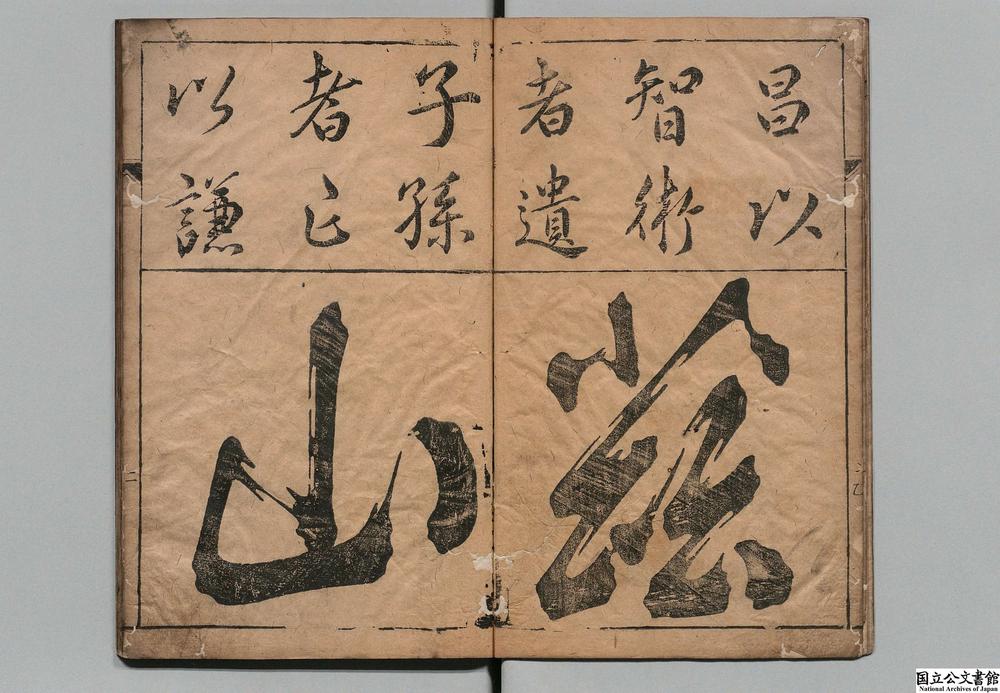 昌以
智術
者遺
子孫
者亡
以謙
茲
山
国立公文書館
National Archives of Japan